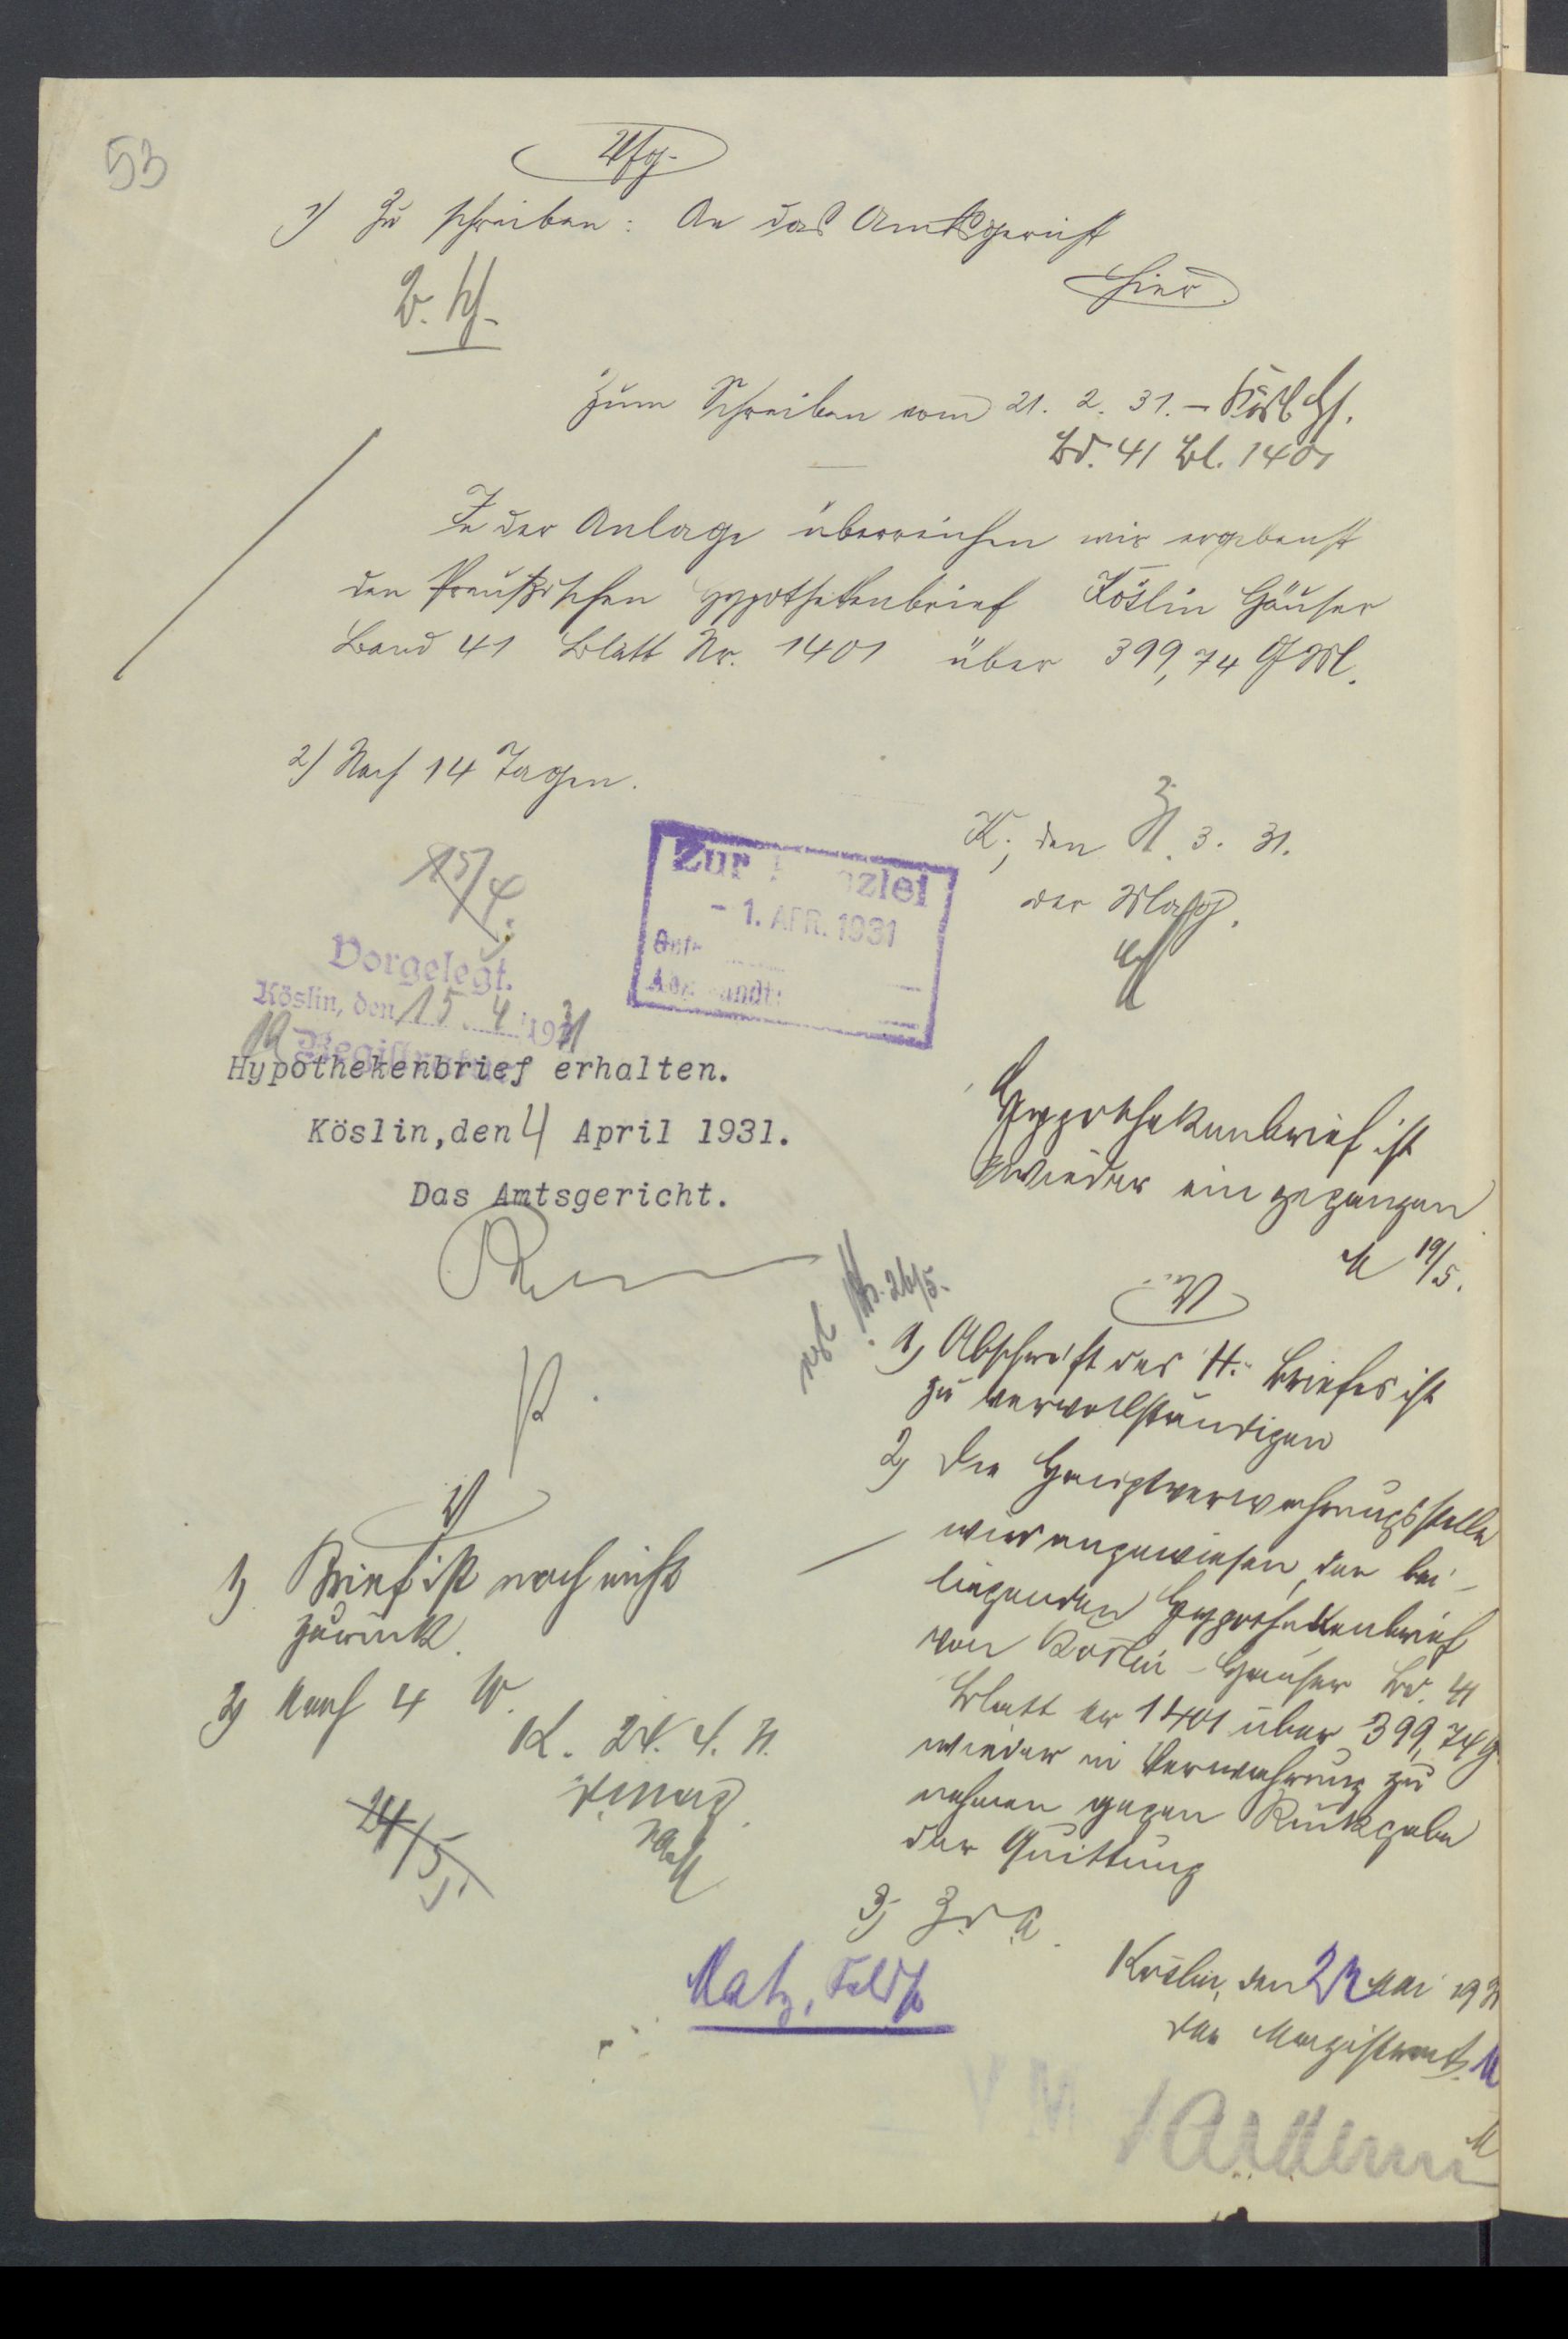 53
Vfg.
1) Zu schreiben: An das Amtsgericht
Hier.
Zum Schreiben vom 21. 2. 31. –
Bd. 41 Bl. 1401
In der Anlage überreichen wir ergebenst
den Preußischen Hypothekenbrief Köslin Häuser
Band 41 Blatt Nr. 1401 über 399,74 GM.
2) Nach 14 Tagen.
K., den 3. 31.
der Mag.
15/4.
Zur Kanzlei
- 1. APR. 1931
Vorgelegt.
Köslin, den 15. 4. 1931
Registratur
Hypothekenbrief erhalten.
Köslin, den 4 April 1931.
Das Amtsgericht.
Hypothekenbrief ist
wieder eingegangen
M 19/5.
V
1) Abschrift des H. Briefes ist
zu vervollständigen
2) Die Hauptverwahrungsstelle
wird angewiesen, den bei-
liegenden Hypothekenbrief
von Köslin-Häuser Bd. 41
Blatt Nr 1401 über 399,74 G
wieder in Verwahrung zu
nehmen gegen Rückgabe
der Quittung
3) Z. d. A.
Köslin, den 2 Mai 1931
Der Magistrat.
V
1) Brief ist noch nicht
zurück.
2) Nach 4 W.
K. 24. 4. 31.
D. Mag.
24/5.